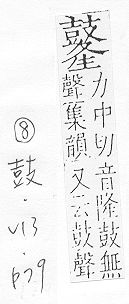 力中切音隆鼓無
聲集韻又云鼓聲
⑧
鼓.
V13.